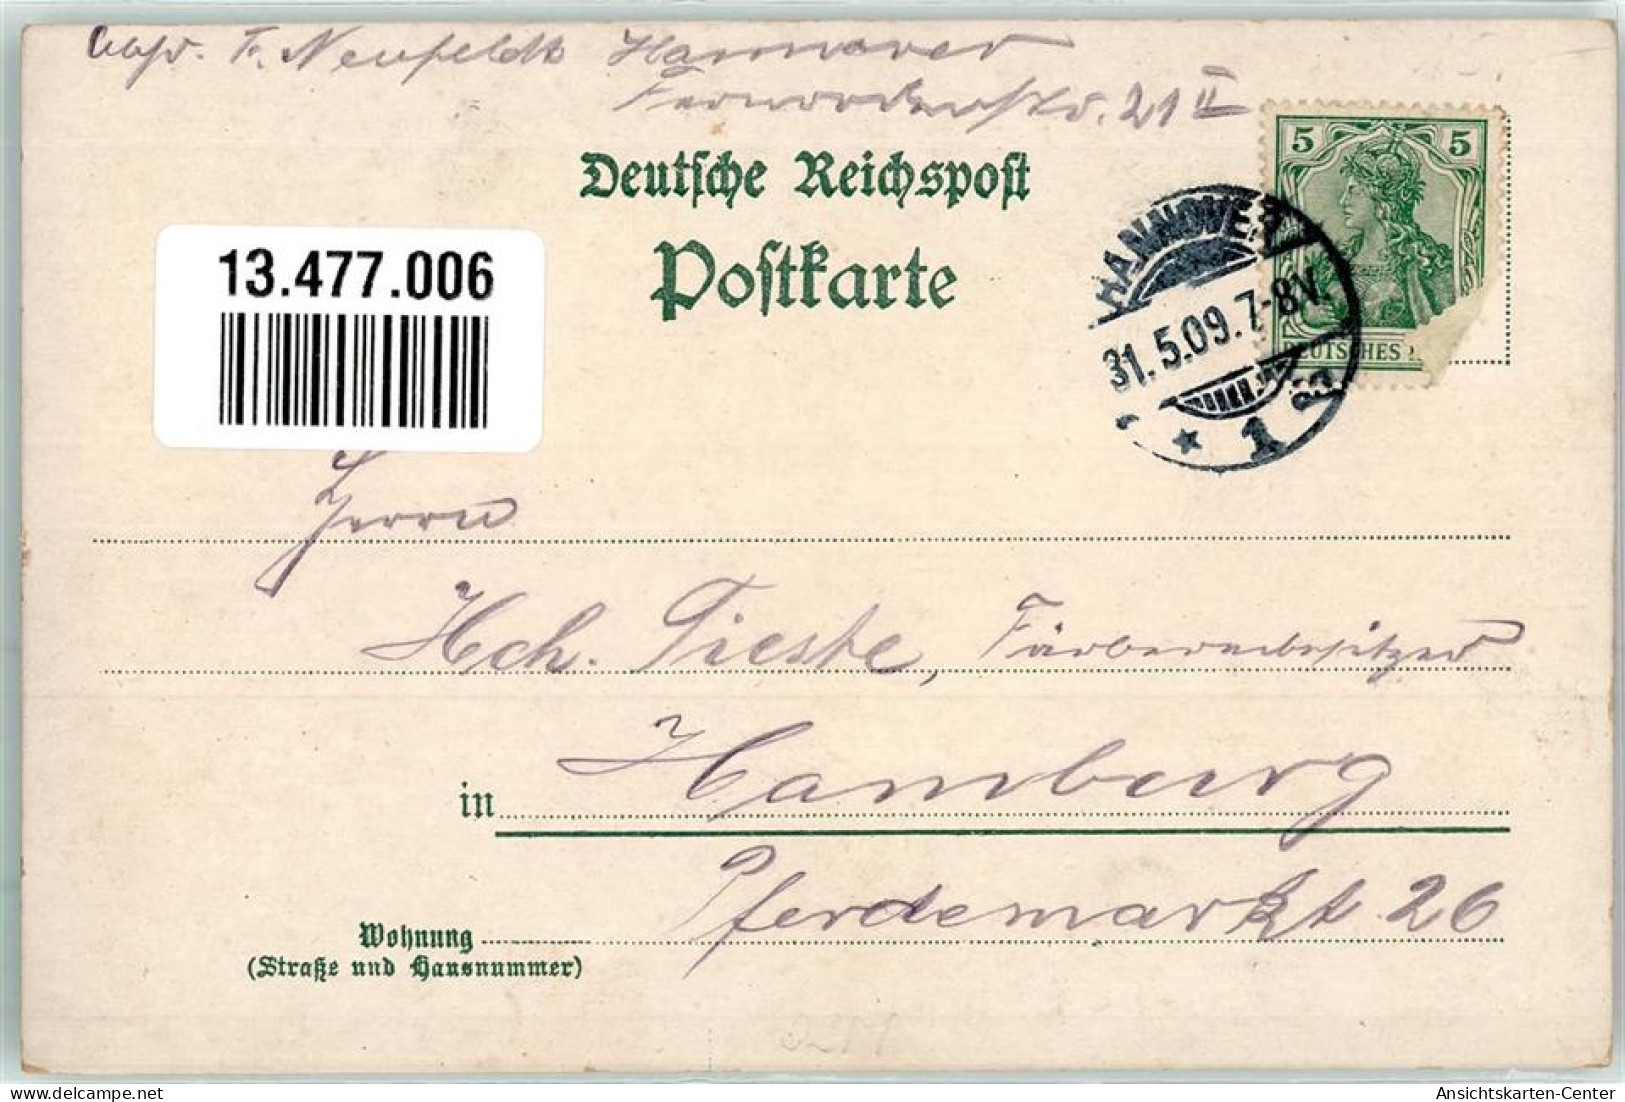 Absr. F. Neufeldt Hannover
21 II
Deutsche Reichspost
Postkarte
5 5
DEUTSCHES
HANNOVER
31.5.09.7-8V.
* 1
13.477.006
Herrn
Hch. Tieste, Färbereibesitzer
in Hamburg
Pferdemarkt 26
Wohnung
(Straße und Hausnummer)
Ansichtskarten-Center